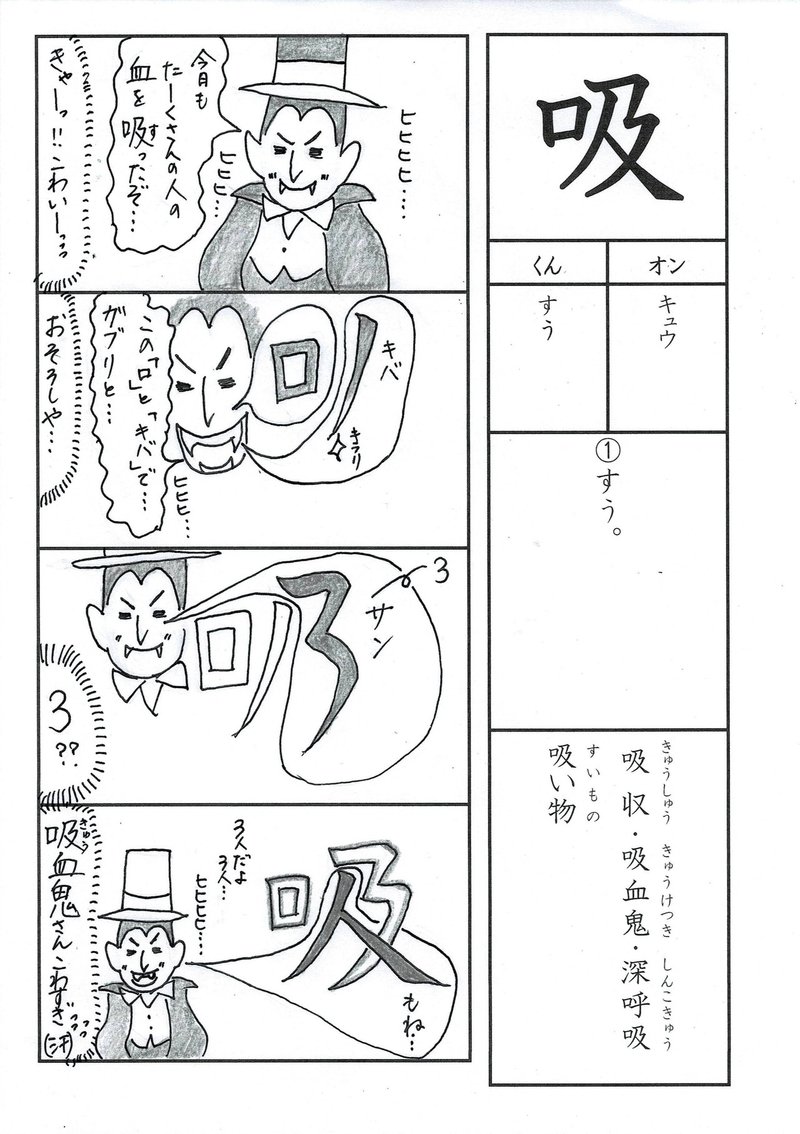 吸
オン
キュウ
くん
すう
①すう。
きゅうしゅう きゅうけつき しんこきゅう
吸収・吸血鬼・深呼吸
すいもの
吸い物
ヒヒヒヒ…
今日も
たーくさんの人の
血を吸ったぞ…
す
ヒヒヒヒ…
きゃーっ!!こわいーっっ
口
ノ
キバ
キラリ
この「口」と「キバ」で…
ガブリと…
ヒヒヒ…
おそろしや…
3
サン
口
ノ
3
3
??
吸
人
もね…
3人だよ
3人…
ヒヒヒヒ…
きゅう
吸血鬼さんこわすぎっっっ
(汗)